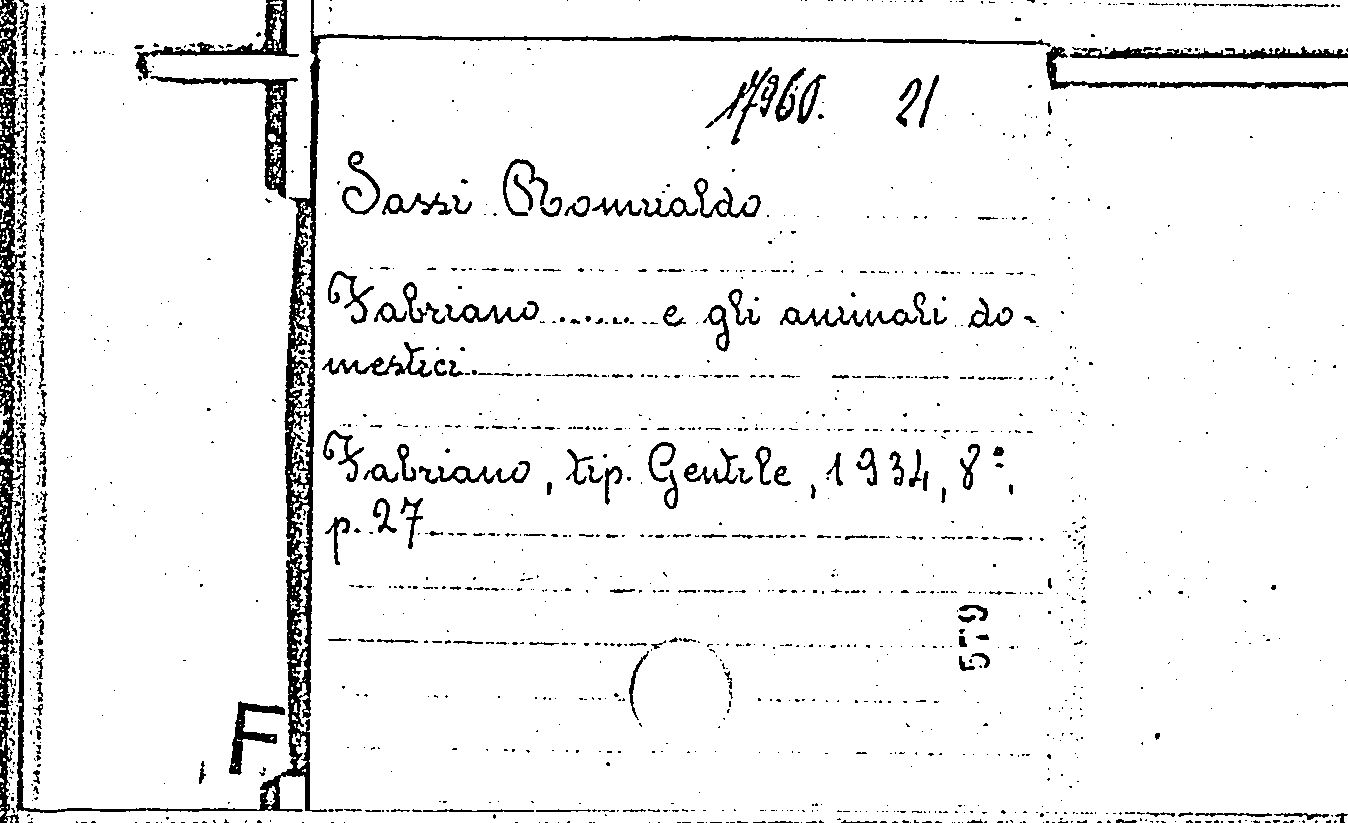 17960. 21
Sassi Romualdo
Fabriano ...... e gli animali do-
mestici.
Fabriano, tip. Gentile, 1934, 8º,
p. 27
579
F